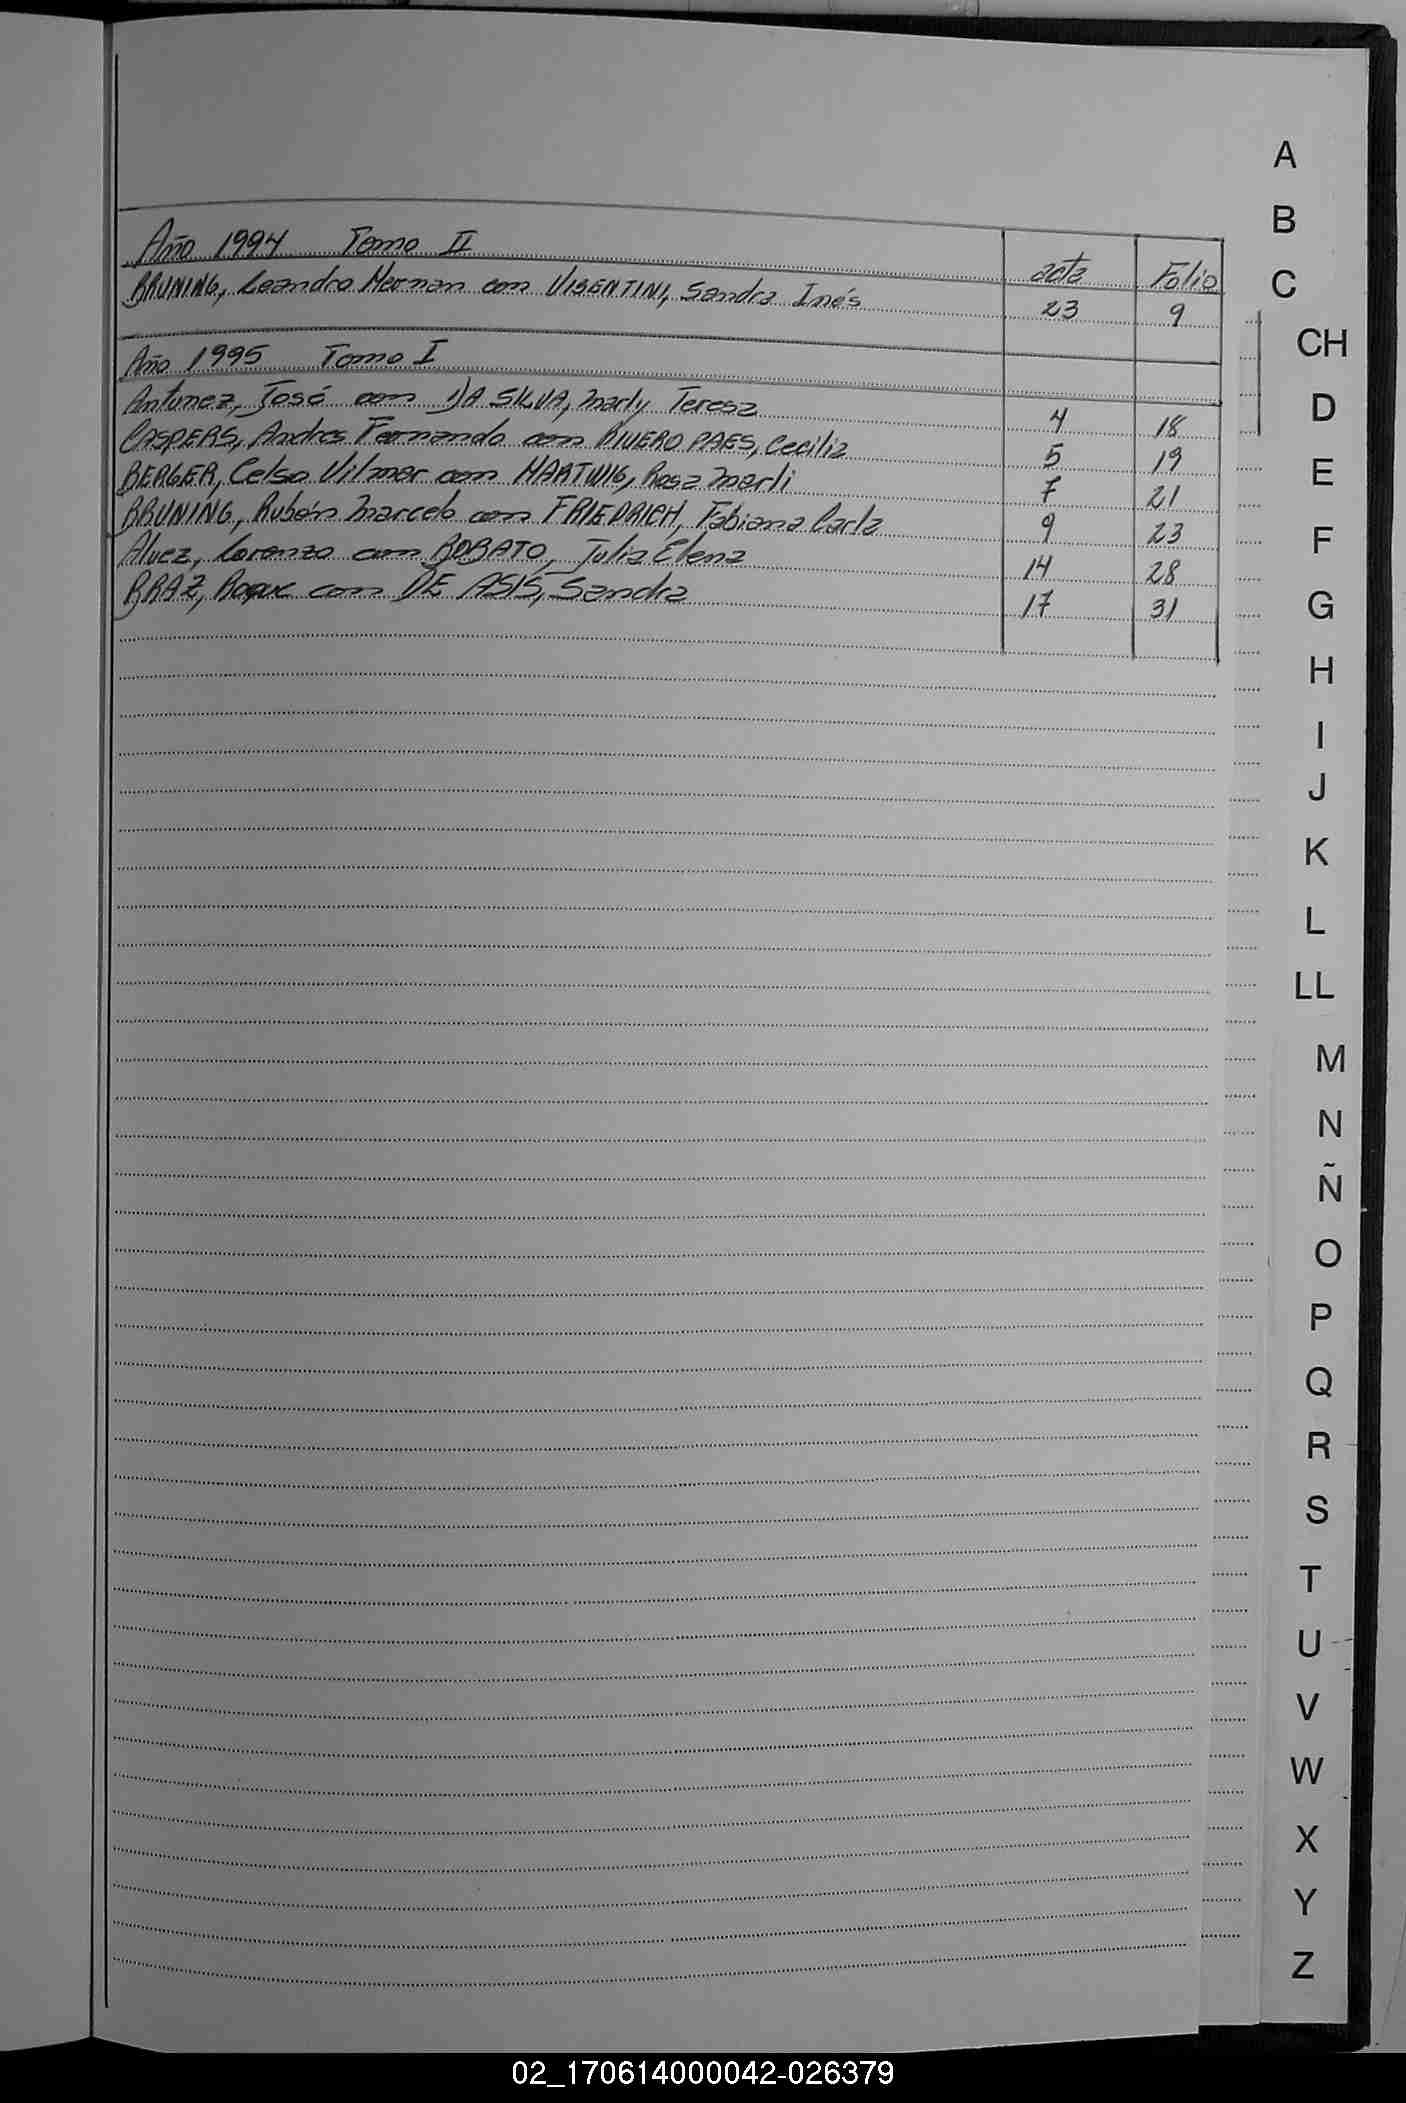 Año 1994 Tomo II acta Folio
BRUNING, Leandro Hernan con VISENTINI, Sandra Inés 23 9
Año 1995 Tomo I
Antunez, José con DA SILVA, Marly Teresa 4 18
CASPERS, Andres Fernando con RIVERO PAES, Cecilia 5 19
BERGER, Celso Vilmar con HARTWIG, Rosa Marli 7 21
BRUNING, Rubén Marcelo con FRIEDRICH, Fabiana Carla 9 23
Alvez, Lorenzo con BOBATO, Julia Elena 14 28
BRAZ, Roque con DE ASIS, Sandra 17 31
A
B
C
CH
D
E
F
G
H
I
J
K
L
LL
M
N
Ñ
O
P
Q
R
S
T
U
V
W
X
Y
Z
02_170614000042-026379